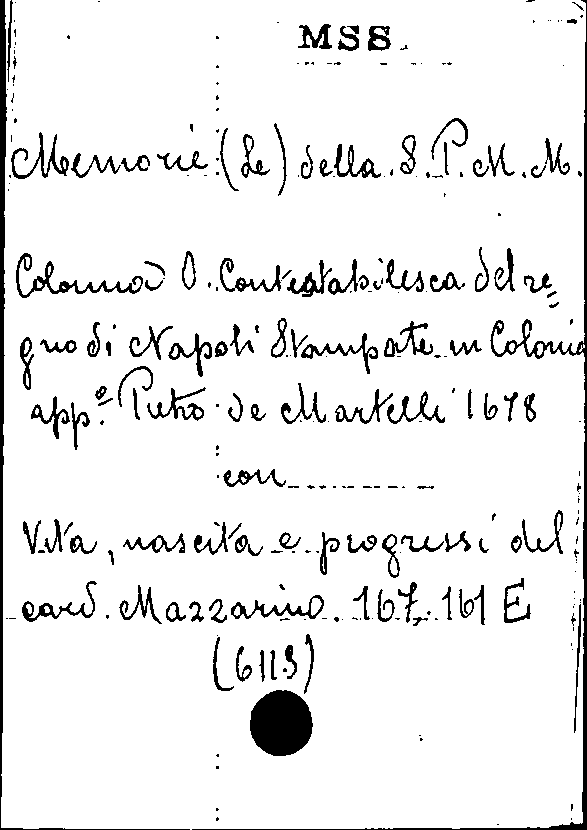 MSS.
Memorie (Le) della S. P. M. M.
Colonna O. Contestabilesca del re=
gno di Napoli Stampate in Colonia
app.º Pietro de Martelli 1678
con
Vita, nascita e progressi del
card. Mazzarino. 167. 161 E
(6113)